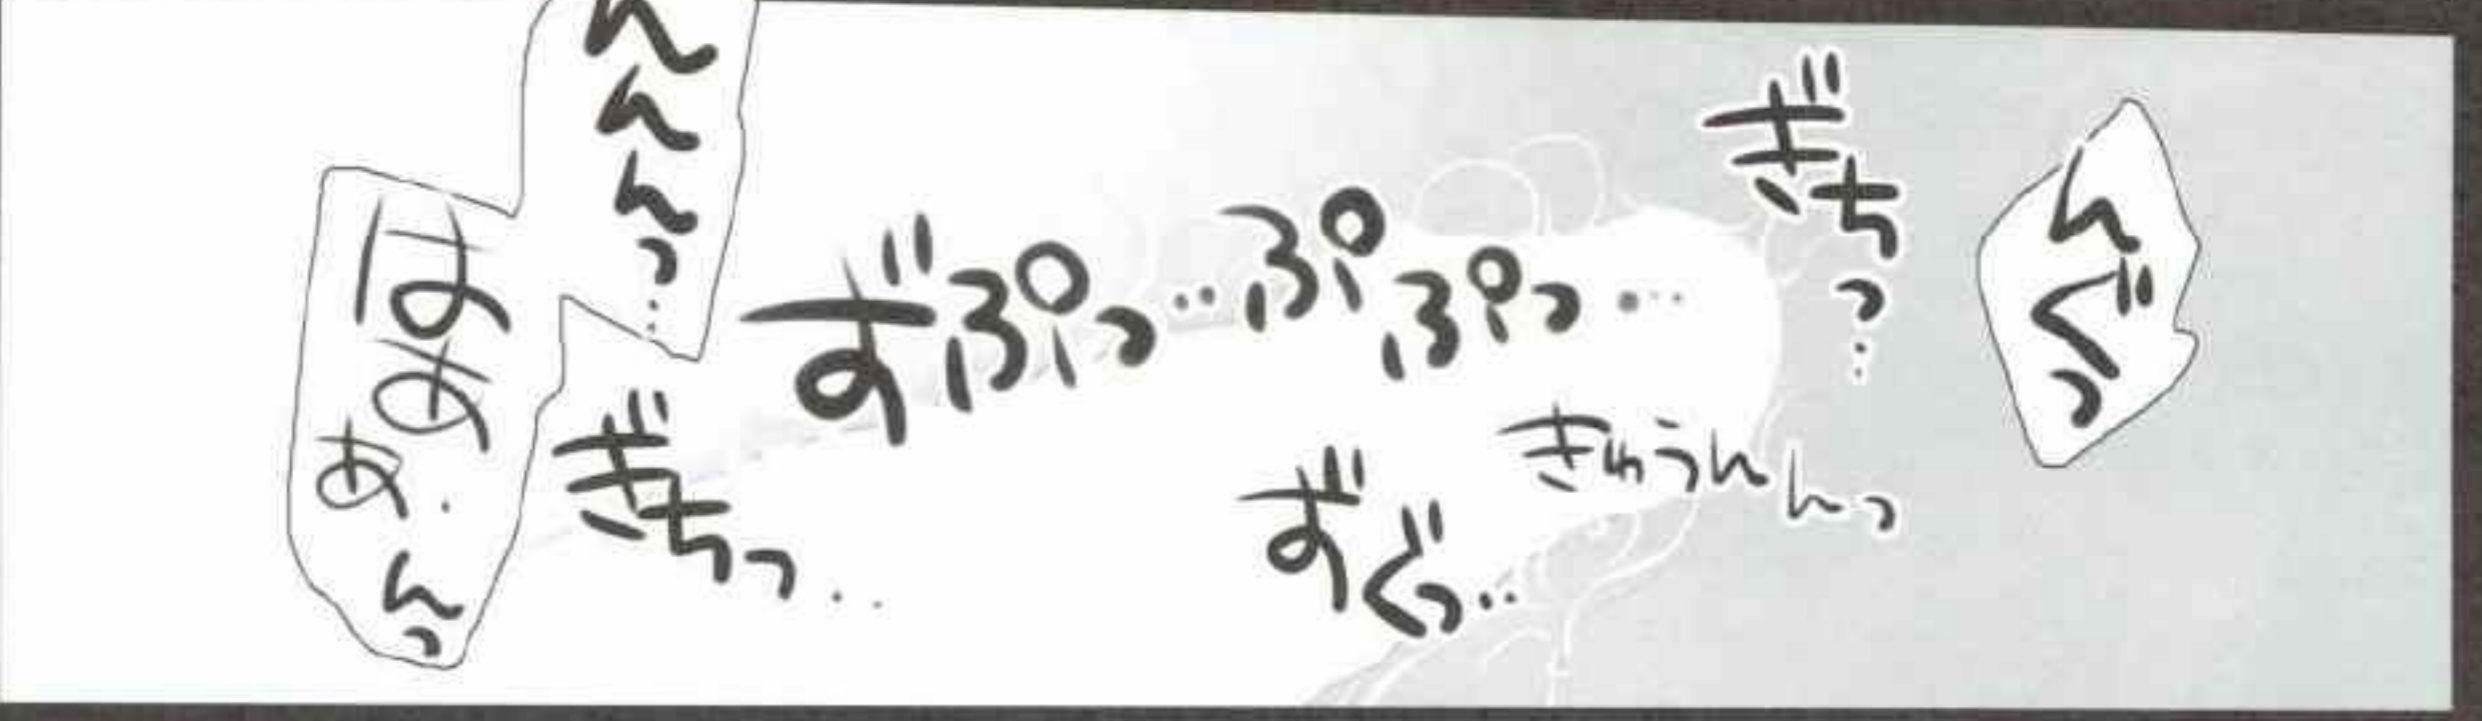 んぐっ
ぎちっ…
きゅうんんっ
ずぷっ…ぷぷっ…
ずぐっ…
んんんっ…
ぎちっ…
はあぁ.んっ